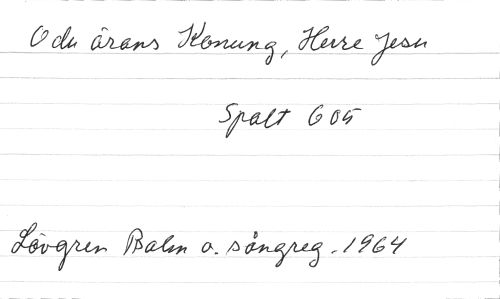 O du ärans Konung, Herre Jesu
Spalt 605
Lövgren Psalm o. sångreg. 1964